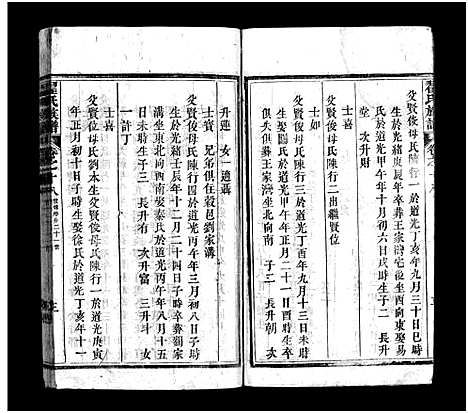 瞿氏族譜
堂 次升財
士喜
父賢俊母氏陳行一於道光丁亥年九月三十日巳時
生於光緒庚辰年卒葬王家灣屯坐西向東娶易
氏於道光甲午年十月初六日戌時生子二 長升
父賢俊母氏陳行二出繼賢位
士如
父賢俊母氏陳行三於道光丁酉年九月十三日未時
生娶陽氏於道光甲午年正月二十日子時生
俱失俱葬王家灣 子三 長升朝 次
升蓮 女一適聶
士賓 兄弟俱住穀邑劉家溝
父賢俊母氏陳行四於道光丙午年三月初八日子時
生於光緒壬辰年十二月二十四日子時卒葬劉家
溝坐東北向西南娶秦氏於道光丙午年八月十五
日未時生子三 長升有 次升富 三升斗 女
一許丁
士喜
父賢位母氏劉本生父賢俊母氏陳行一於道光庚寅
年正月初十日子時生娶徐氏於道光丁亥年十一
瞿氏族譜